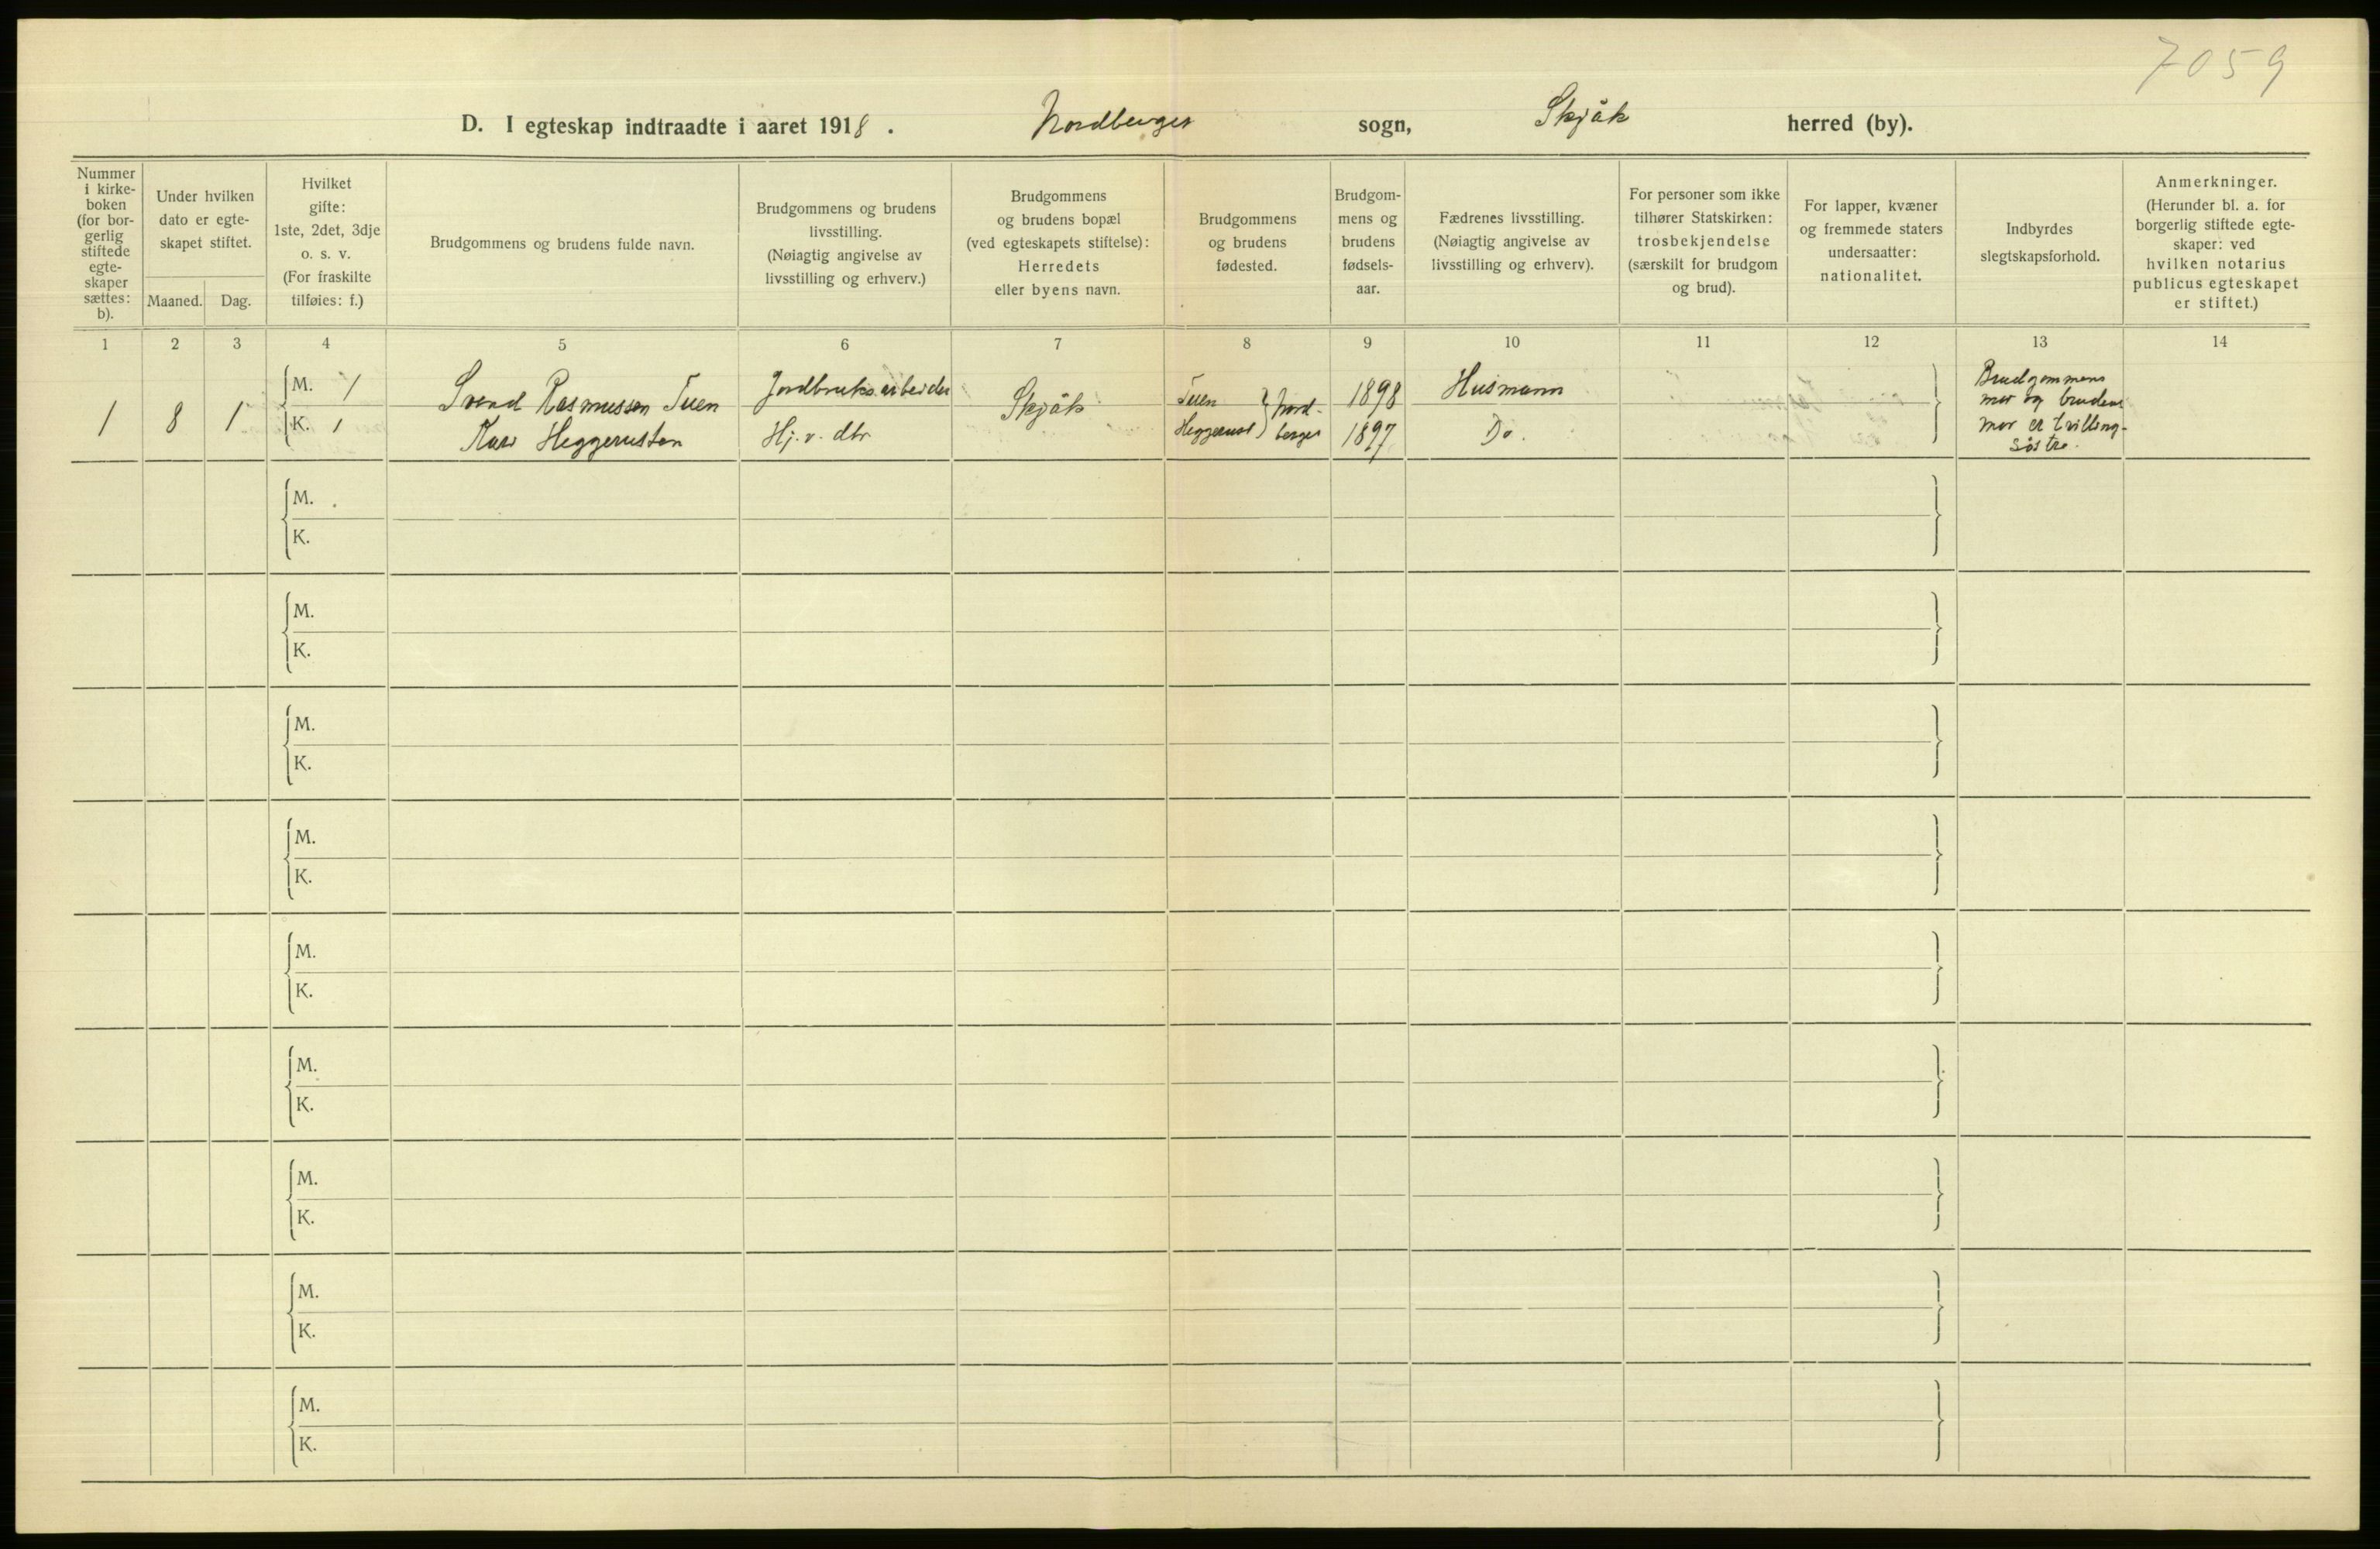 7059
D. I egteskap indtraadte i aaret 1918. Nordberges sogn, Skjåk herred (by).
Nummer i kirke-boken (for bor-gerlig stiftede egte-skaper sættes: b).
Under hvilken dato er egte-skapet stiftet.
Maaned. Dag.
Hvilket gifte: 1ste, 2det, 3dje o. s. v. (For fraskilte tilføies: f.)
Brudgommens og brudens fulde navn.
Brudgommens og brudens livsstilling. (Nøiagtig angivelse av livsstilling og erhverv.)
Brudgommens og brudens bopæl (ved egteskapets stiftelse): Herredets eller byens navn.
Brudgommens og brudens fødested.
Brudgom-mens og brudens fødsels-aar.
Fædrenes livsstilling. (Nøiagtig angivelse av livsstilling og erhverv).
For personer som ikke tilhører Statskirken: trosbekjendelse (særskilt for brudgom og brud).
For lapper, kvæner og fremmede staters undersaatter: nationalitet.
Indbyrdes slegtskapsforhold.
Anmerkninger. (Herunder bl. a. for borgerlig stiftede egte-skaper: ved hvilken notarius publicus egteskapet er stiftet.)
1 2 3 4 5 6 7 8 9 10 11 12 13 14
1 8 1
M. 1 Svend Rasmussen Tuen Jordbruksarbeider Skjåk Tuen } Nord- 1898 Husmann
K. 1 Kari Heggerusten Hj. v. dtr. Heggerust } berges 1897 Do.
Brudgommens
mor og brudens
mor er tvilling-
søstre.
M.
K.
M.
K.
M.
K.
M.
K.
M.
K.
M.
K.
M.
K.
M.
K.
M.
K.